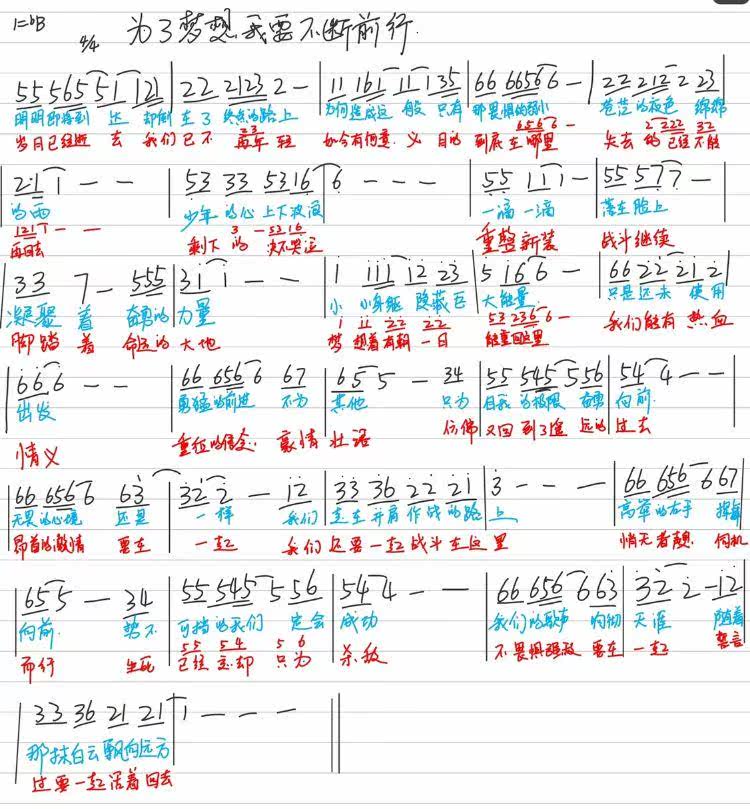 1=bB 4/4 为了梦想我要不断前行.
55 565 51 121 | 22 2123 2 — | 11 161 11 135 | 66 6656 6 — | 22 212 2 23
明明即将到 达 却倒 在了 终点的路上 为何造成这 般 只有 那畏惧的弱小 苍茫的夜色 绵绵
岁月已经逝 去 我们 已不 再年轻 如今有何意 义 目的 到底在哪里 失去 的 已经不能
| 2 1 1 — — | 53 33 5316 6 — — — | 55 111 — | 55 577 — |
的雨 少年 的心 上下波澜 一滴一滴 落在脸上
再回去 剩下 的 决不哭泣 重整新装 战斗继续
33 7 — 555 | 31 1 — — | 1 111 12 23 | 5 166 — | 66 22 21 2 |
凝聚 着 奋勇的 力量 小 小身躯 隐藏 巨 大能量. 只是还未 使用
脚踏 着 命运的 大地 梦 想着有朝一日 能重回这里 我们能有 热血
666 — — | 66 656 6 67 | 65 5 — 34 | 55 545 5 56 | 54 4 — — |
出发 勇猛的前进 不为 其他 只为 自我的极限 奋勇 向前.
情义 重拉的信念. 豪情 壮语 仿佛 又回到了 远的 过去
66 656 6 63 | 32 2 — 12 | 33 36 22 21 | 3 — — — | 66 656 6 67 |
无畏的心境 还是 一样 我们 走在并肩作战的路 上 高举的右手
昂首的激情 要在 一起 我们 还要一起战斗在这 里 悄无着声息 伺机
65 5 — 34 | 55 545 5 56 | 54 4 — — | 66 656 6 63 | 32 2 — 12 |
向前. 势不 可挡的我们 定会 成功 我们的歌声 响彻 天涯 随着
而行 生死 已经 忘却 只为 杀敌 不畏惧强敌 要在 一起 誓言
33 36 21 21 1 — — —
那抹白云飘向远方
过要一起活着回去